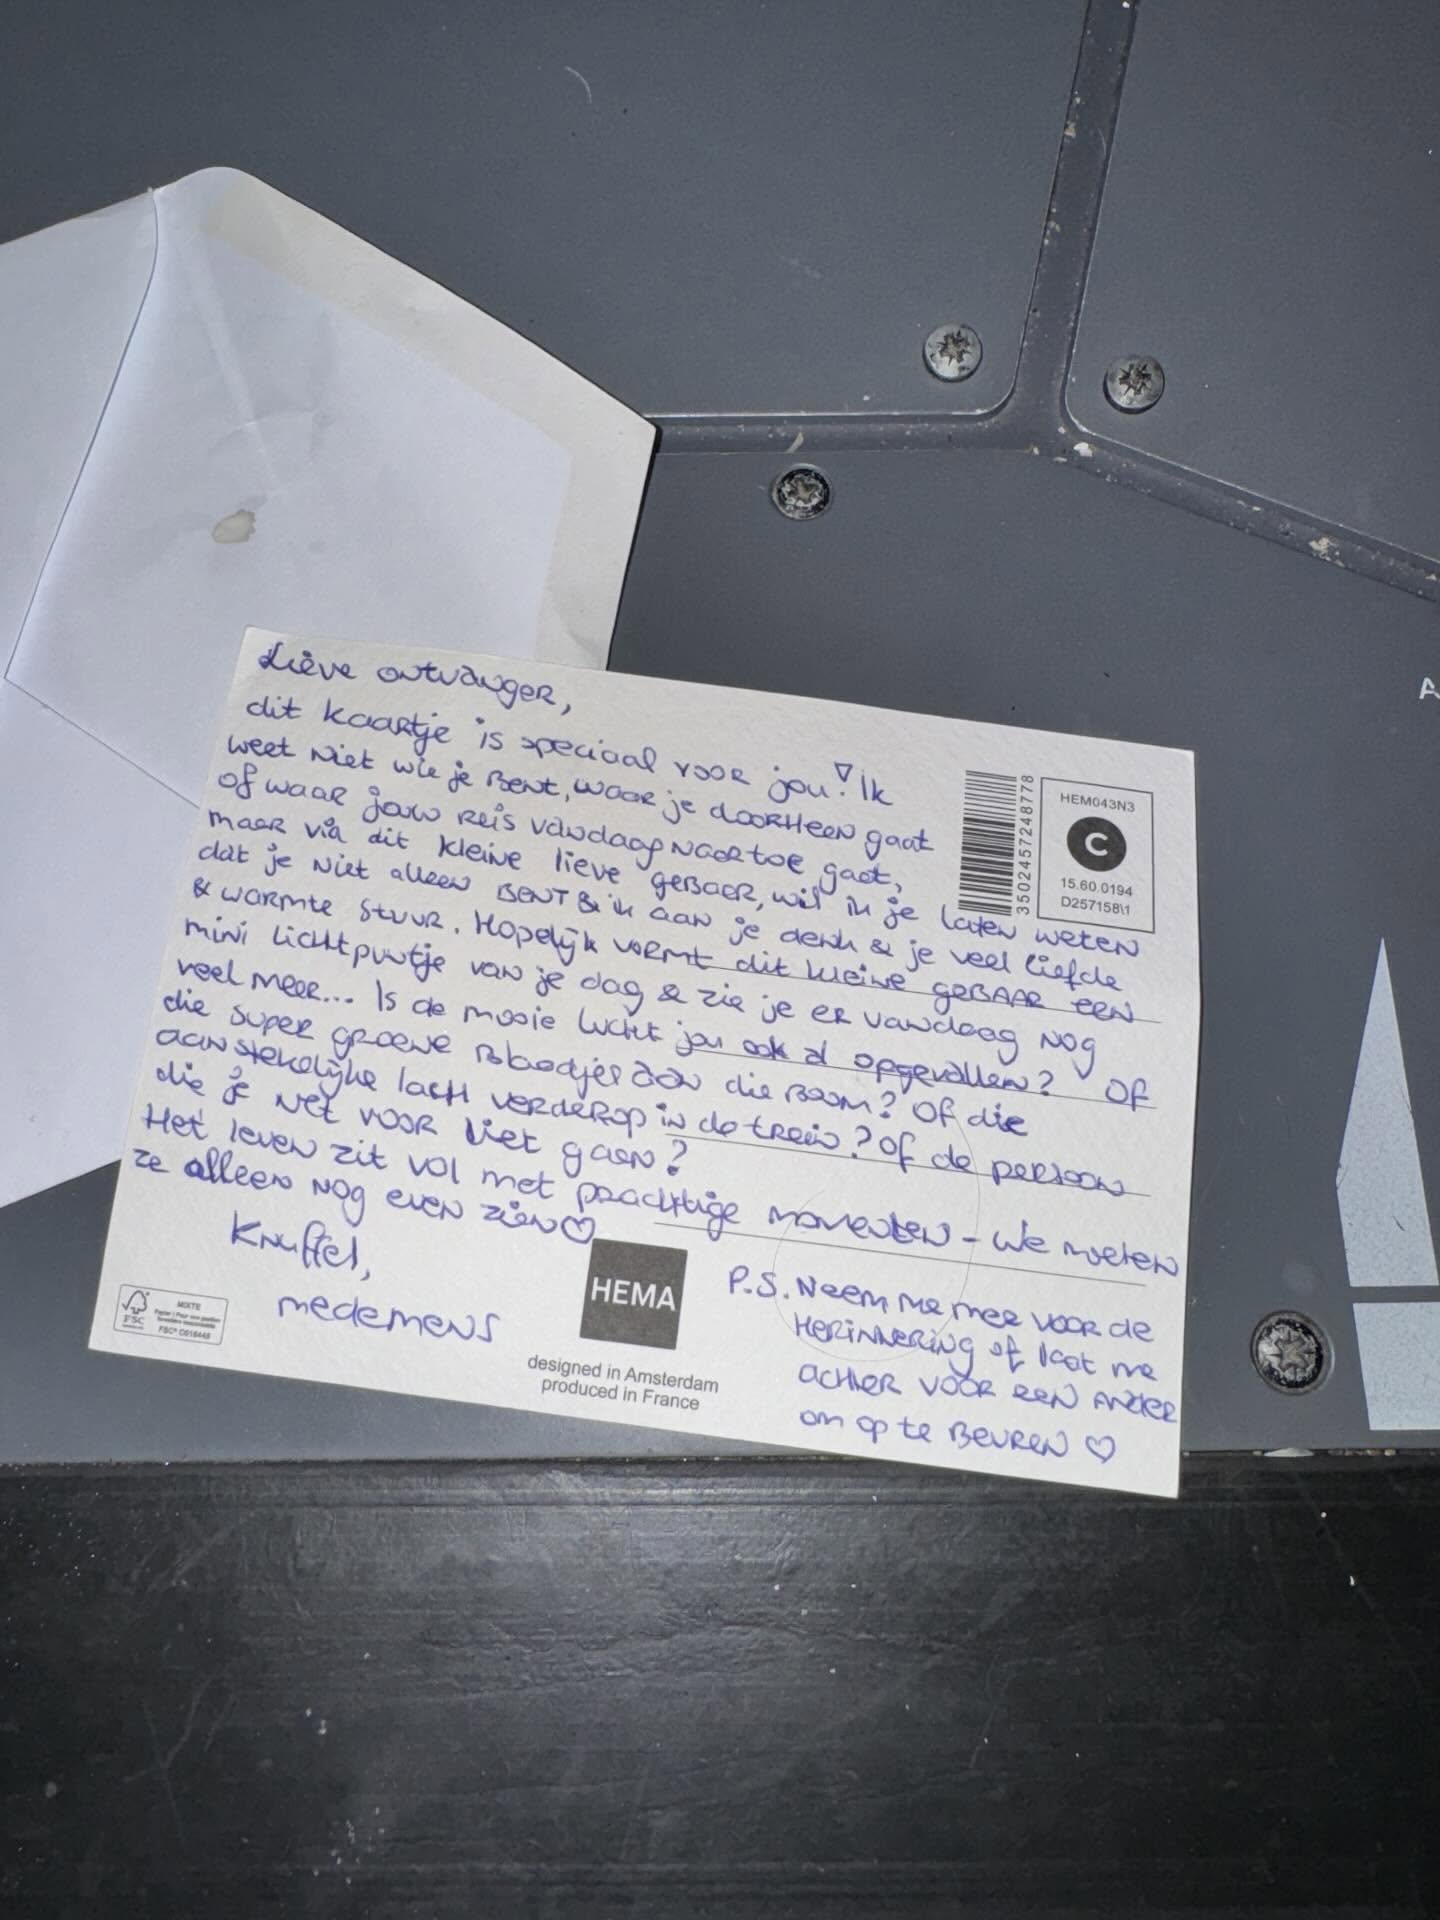 Lieve ontvanger,
dit kaartje is speciaal voor jou! Ik
weet niet wie je bent, waar je doorheen gaat
of waar jouw reis vandaag naartoe gaat,
maar via dit kleine lieve gebaar, wil ik je laten weten
dat je niet alleen bent & ik aan je denk & je veel liefde
& warmte stuur. Hopelijk vormt dit kleine gebaar een
mini lichtpuntje van je dag & zie je er vandaag nog
veel meer... Is de mooie lucht jou ook al opgevallen? Of
die super groene blaadjes aan die boom? Of die
aanstekelijke lach verderop in de trein? Of de persoon
die je net voor liet gaan?
Het leven zit vol met prachtige momenten - we moeten
ze alleen nog even zien ♡
Knuffel,
medemens
P.S. Neem me mee voor de
herinnering of laat me
achter voor een ander
om op te beuren ♡
3502457248778
HEM043N3
C
15.60.0194
D257158\1
FSC
MIXTE
FSC® C016448
HEMA
designed in Amsterdam
produced in France
A